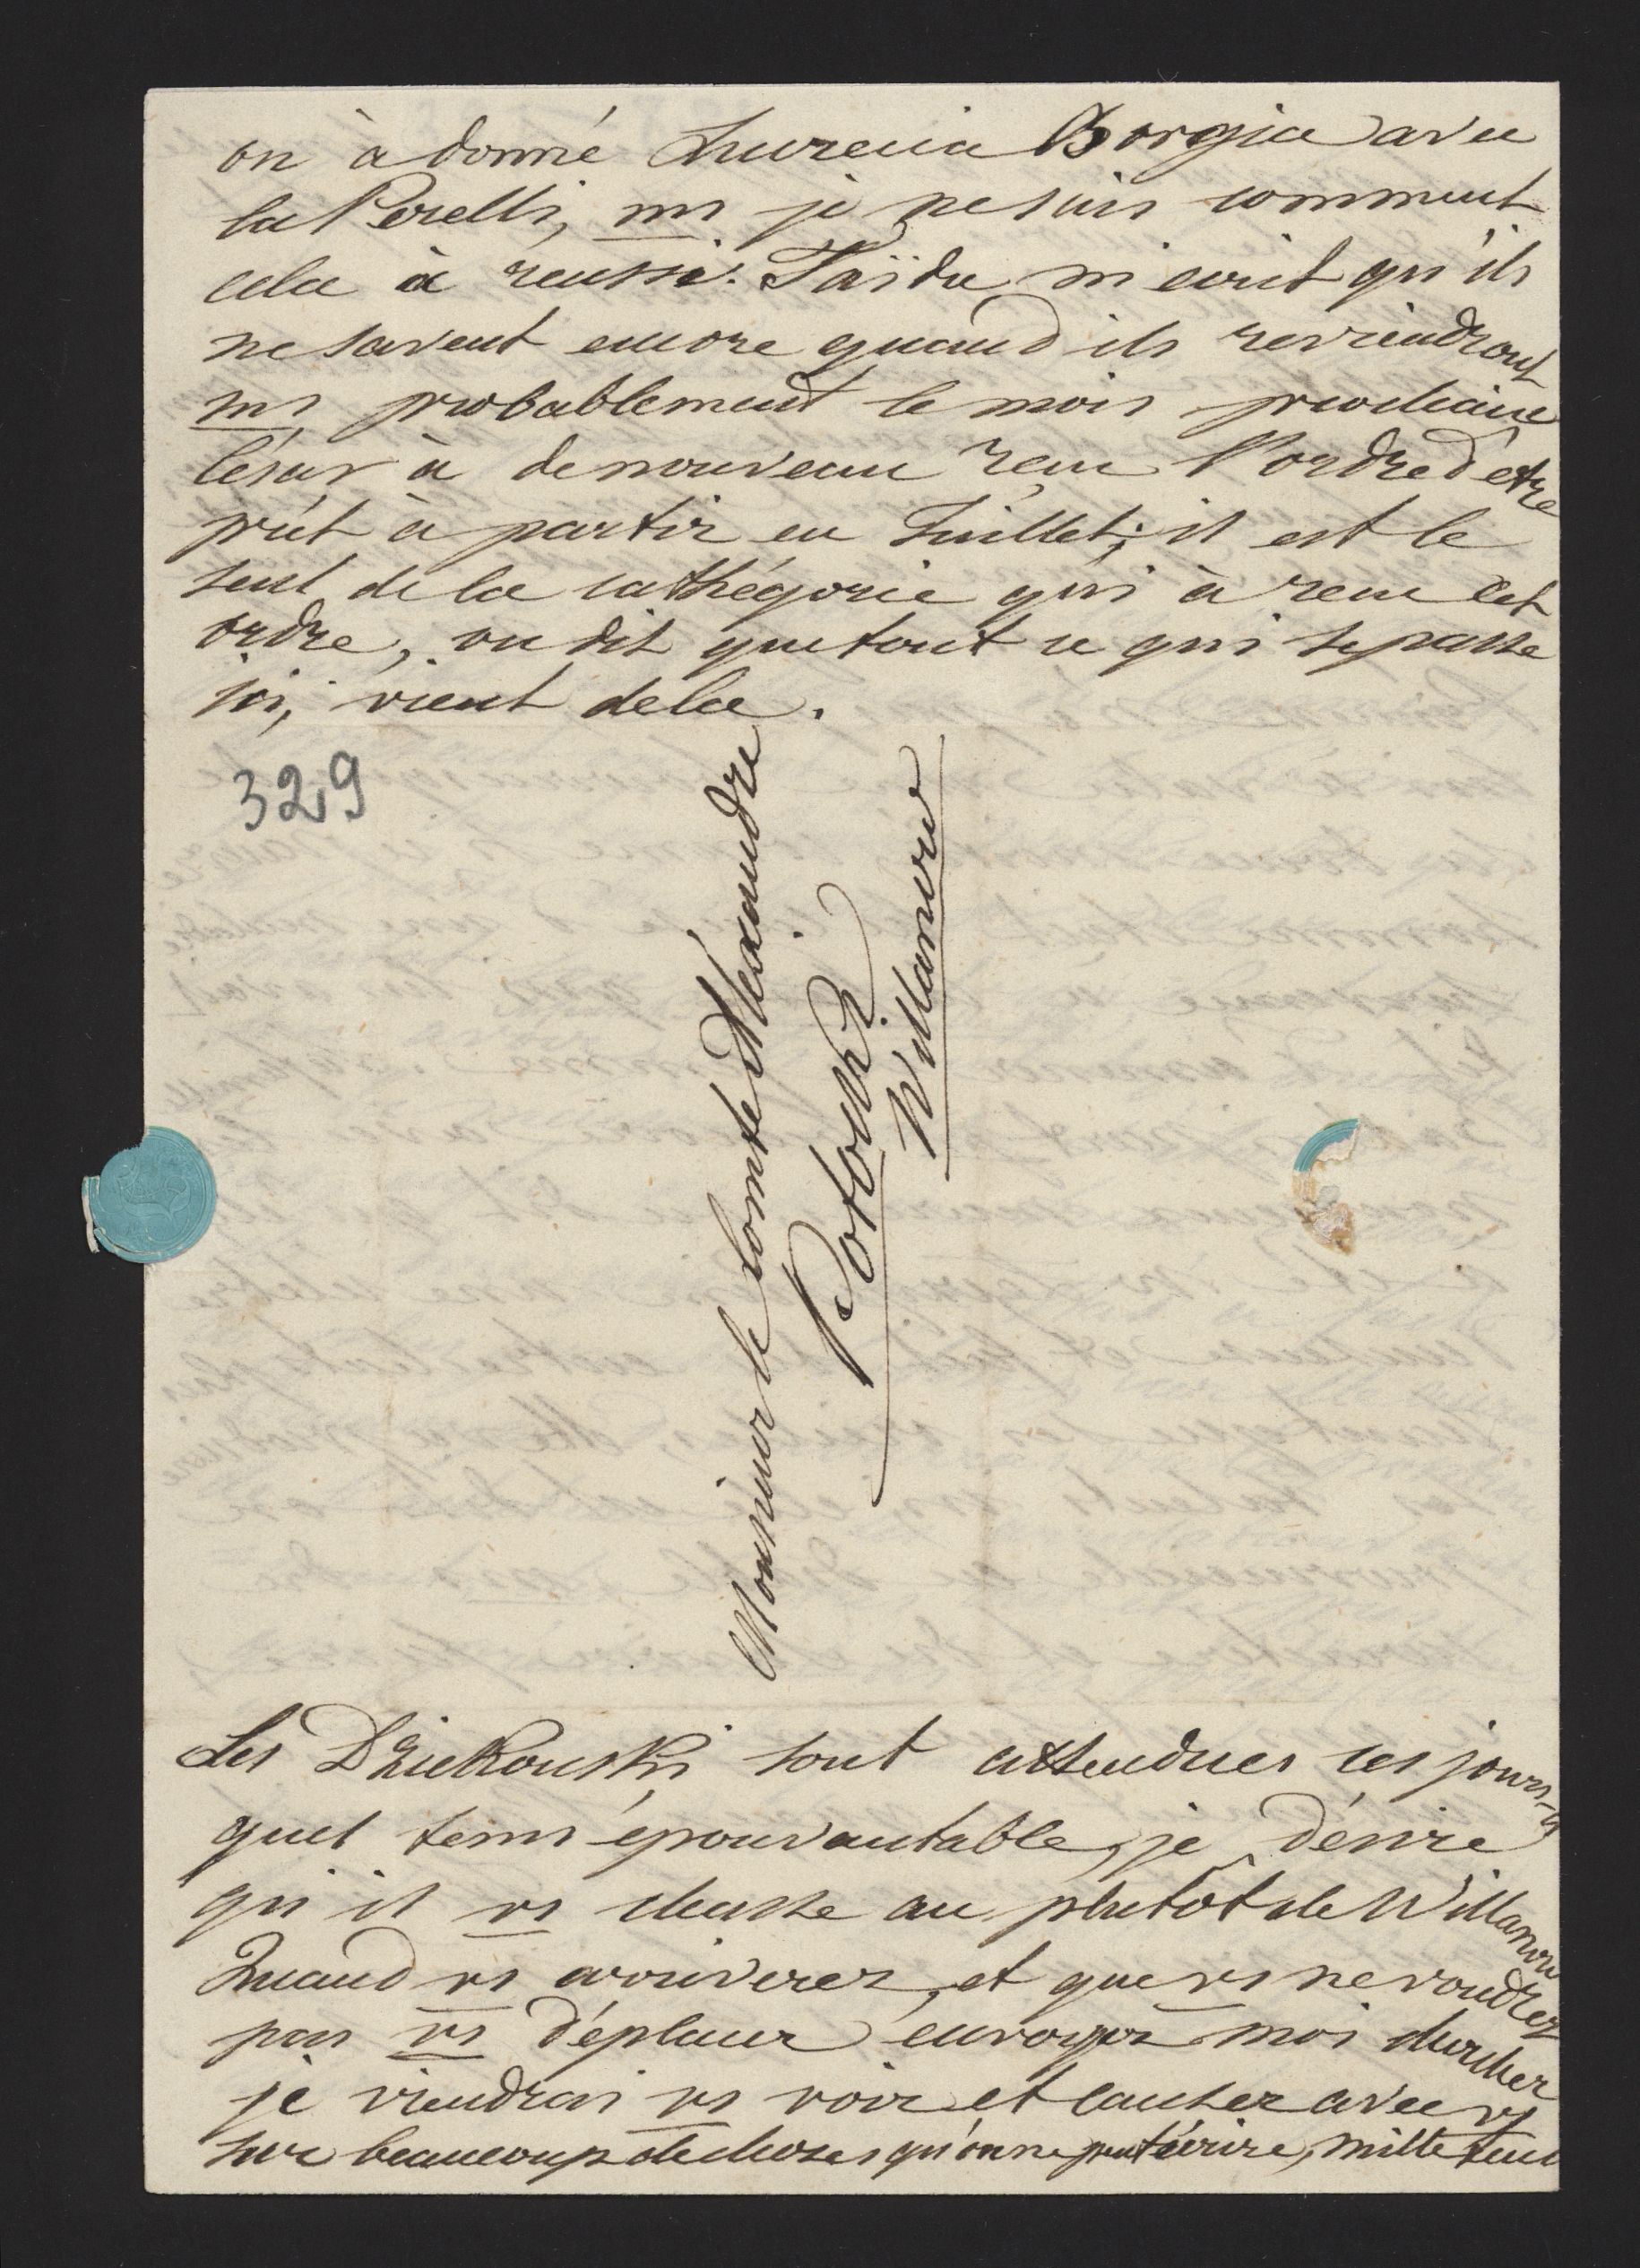 on à donné Lucrecia Borgia avec
la Perelli, ms je ne sais comment
cela à reussi. Taïda m'ecrit qu'ils
ne savent encore quand ils reviendront
ms probablement le mois prochaine
César à de nouveau reçu l'ordre d'etre
prêt à partir en Juillet; il est le
seul de la cathégorie qui à recu cet
ordre, on dit que tout ce qui se passe
ici, vient de la.
329
Monsieur le Comte Alexandre
Potocki
Willanow
Les Dziekonski sont attendues ces jours-ci
quel tems épouvantable, je désire
qu'il vs chasse au plutôt de Willanow
Quand vs arriverez, et que vs ne voudrez
pas vs déplacer envoyez moi chercher
je viendrai vs voir et causer avec vs
sur beaucoup de choses qu'on ne peut écrire, mille